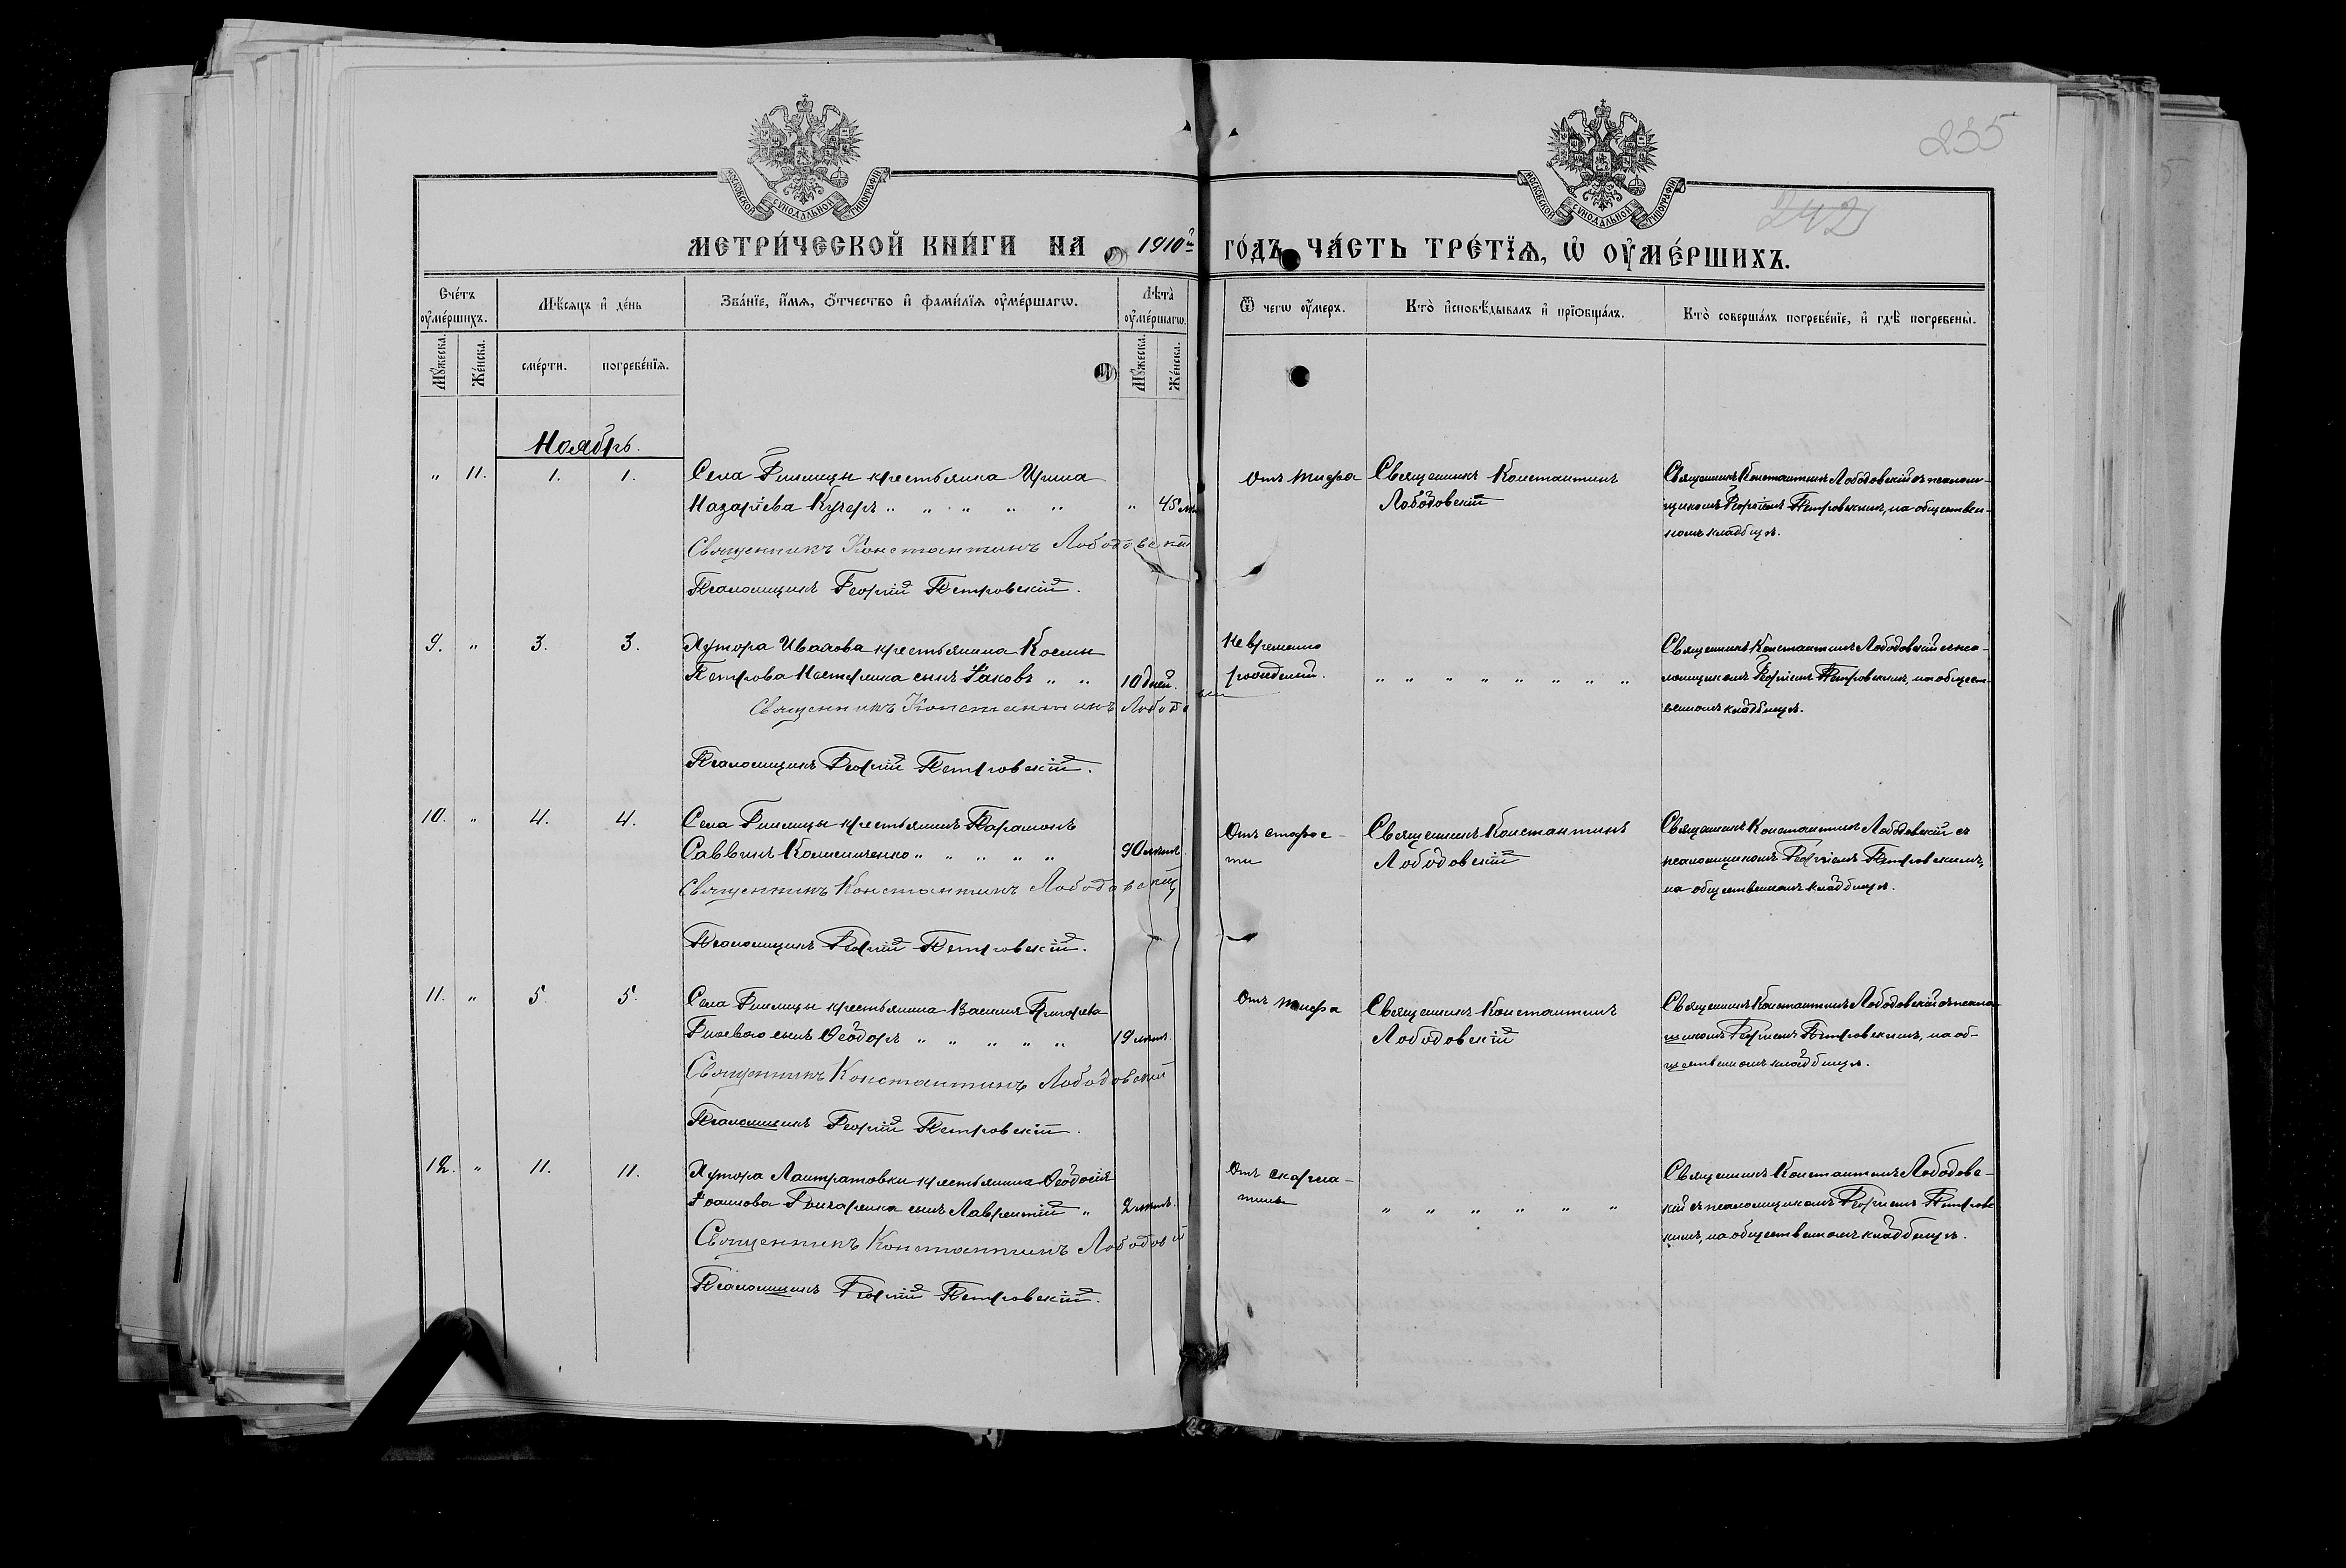 МОСКОВСКОЙ СѴНОДАЛЬНОЙ ТИПОГРАФІИ
МОСКОВСКОЙ СѴНОДАЛЬНОЙ ТИПОГРАФІИ
235
242
МЕТРИ́ЧЕСКОЙ КНИ́ГИ НА 1910й ГО́ДЪ ЧА́СТЬ ТРЕ́ТЇѦ, Ѡ҆ ОУ҆МЕ́РШИХЪ.
Сче́тъ оу҆ме́ршихъ.
Мѣ́сяцъ и҆ де́нь
Зва́нїе, и҆́мѧ, ѻ҆́тчество и҆ фами́лїѧ оу҆ме́ршагѡ.
Лѣ́та оу҆ме́ршагѡ.
Ѿ чегѡ̀ оу҆́меръ.
Кто̀ и҆сповѣ́дывалъ и҆ прїѡбща́лъ.
Кто̀ соверша́лъ погребе́нїе, и҆ гдѣ̀ погребены̀.
Мꙋ́жеска. Же́нска. сме́рти. погребе́нїѧ. Мꙋ́жеска. Же́нска.
Ноябрь.
" 11. 1. 1. Села крестьянка Ирина
Назаріева Кучеръ " " " " " " 45
Священникъ Константинъ Лободовскій
Псаломщикъ Георгій Петровскій.
Отъ тифа
Священникъ Константинъ
Лободовскій
Священникъ Константинъ Лободовскій съ псалом-
щикомъ Георгіемъ Петровскимъ, на обществен-
номъ кладбищѣ.
9. " 3. 3. Хутора Иванова крестьянина Космы
Петрова Нестренка сынъ Іаковъ " " 10 дней.
Священникъ Константинъ Лободовскій
Псаломщикъ Георгій Петровскій.
Невременно
рожденный.
" " " " " " " "
Священникъ Константинъ Лободовскій съ пса-
ломщикомъ Георгіемъ Петровскимъ, на общест-
венномъ кладбищѣ.
10. " 4. 4. Села крестьянинъ Парамонъ
Саввинъ " " " " " 90 лѣтъ.
Священникъ Константинъ Лободовскій
Псаломщикъ Георгій Петровскій.
Отъ старос-
ти
Священникъ Константинъ
Лободовскій
Священникъ Константинъ Лободовскій съ
псаломщикомъ Георгіемъ Петровскимъ,
на общественномъ кладбищѣ.
11. " 5. 5. Села крестьянина Василія Григорьева
сынъ Ѳеодоръ " " " " " 19 лѣтъ.
Священникъ Константинъ Лободовскій
Псаломщикъ Георгій Петровскій.
Отъ тифа
Священникъ Константинъ
Лободовскій
Священникъ Константинъ Лободовскій съ псалом-
щикомъ Георгіемъ Петровскимъ, на об-
щественномъ кладбищѣ.
12. " 11. 11. Хутора крестьянина Ѳеодосія
Іоаннова Гончаренка сынъ Лаврентій " 2 лѣтъ.
Священникъ Константинъ
Псаломщикъ Георгій Петровскій.
Отъ скарла-
тины
" " " " " "
Священникъ Константинъ Лободовс-
кій съ псаломщикомъ Георгіемъ Петровс-
кимъ, на общественномъ кладбищѣ.